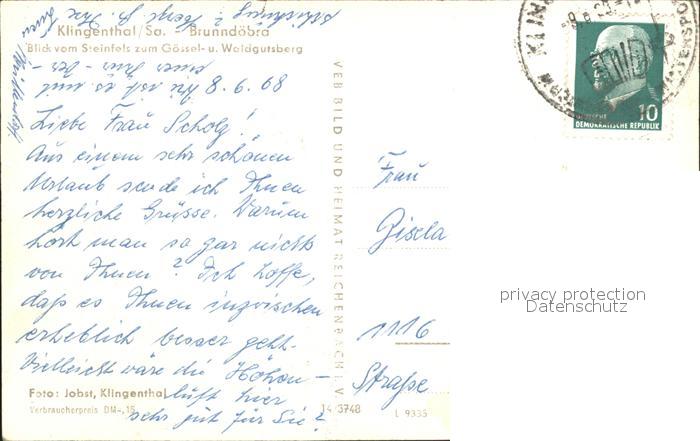 Klingenthal/Sa. Brunndöbra
Blick vom Steinfels zum Gössel- u. Waldgutsberg
8. 6. 68
Liebe Frau Scholz!
Aus einem sehr schönen
Urlaub sende ich Ihnen
herzliche Grüsse. Warum
hört man so gar nichts
von Ihnen? Ich hoffe,
daß es Ihnen inzwischen
erheblich besser geht.
Vielleicht wäre die Höhen-
luft hier
sehr gut für Sie?
Foto: Jobst, Klingenthal
Verbraucherpreis DM -,15
14/3748
L 9335
VEB BILD UND HEIMAT REICHENBACH I. V.
Frau
Gisela
1116
Straße
10
DEUTSCHE
DEMOKRATISCHE REPUBLIK
privacy protection
Datenschutz